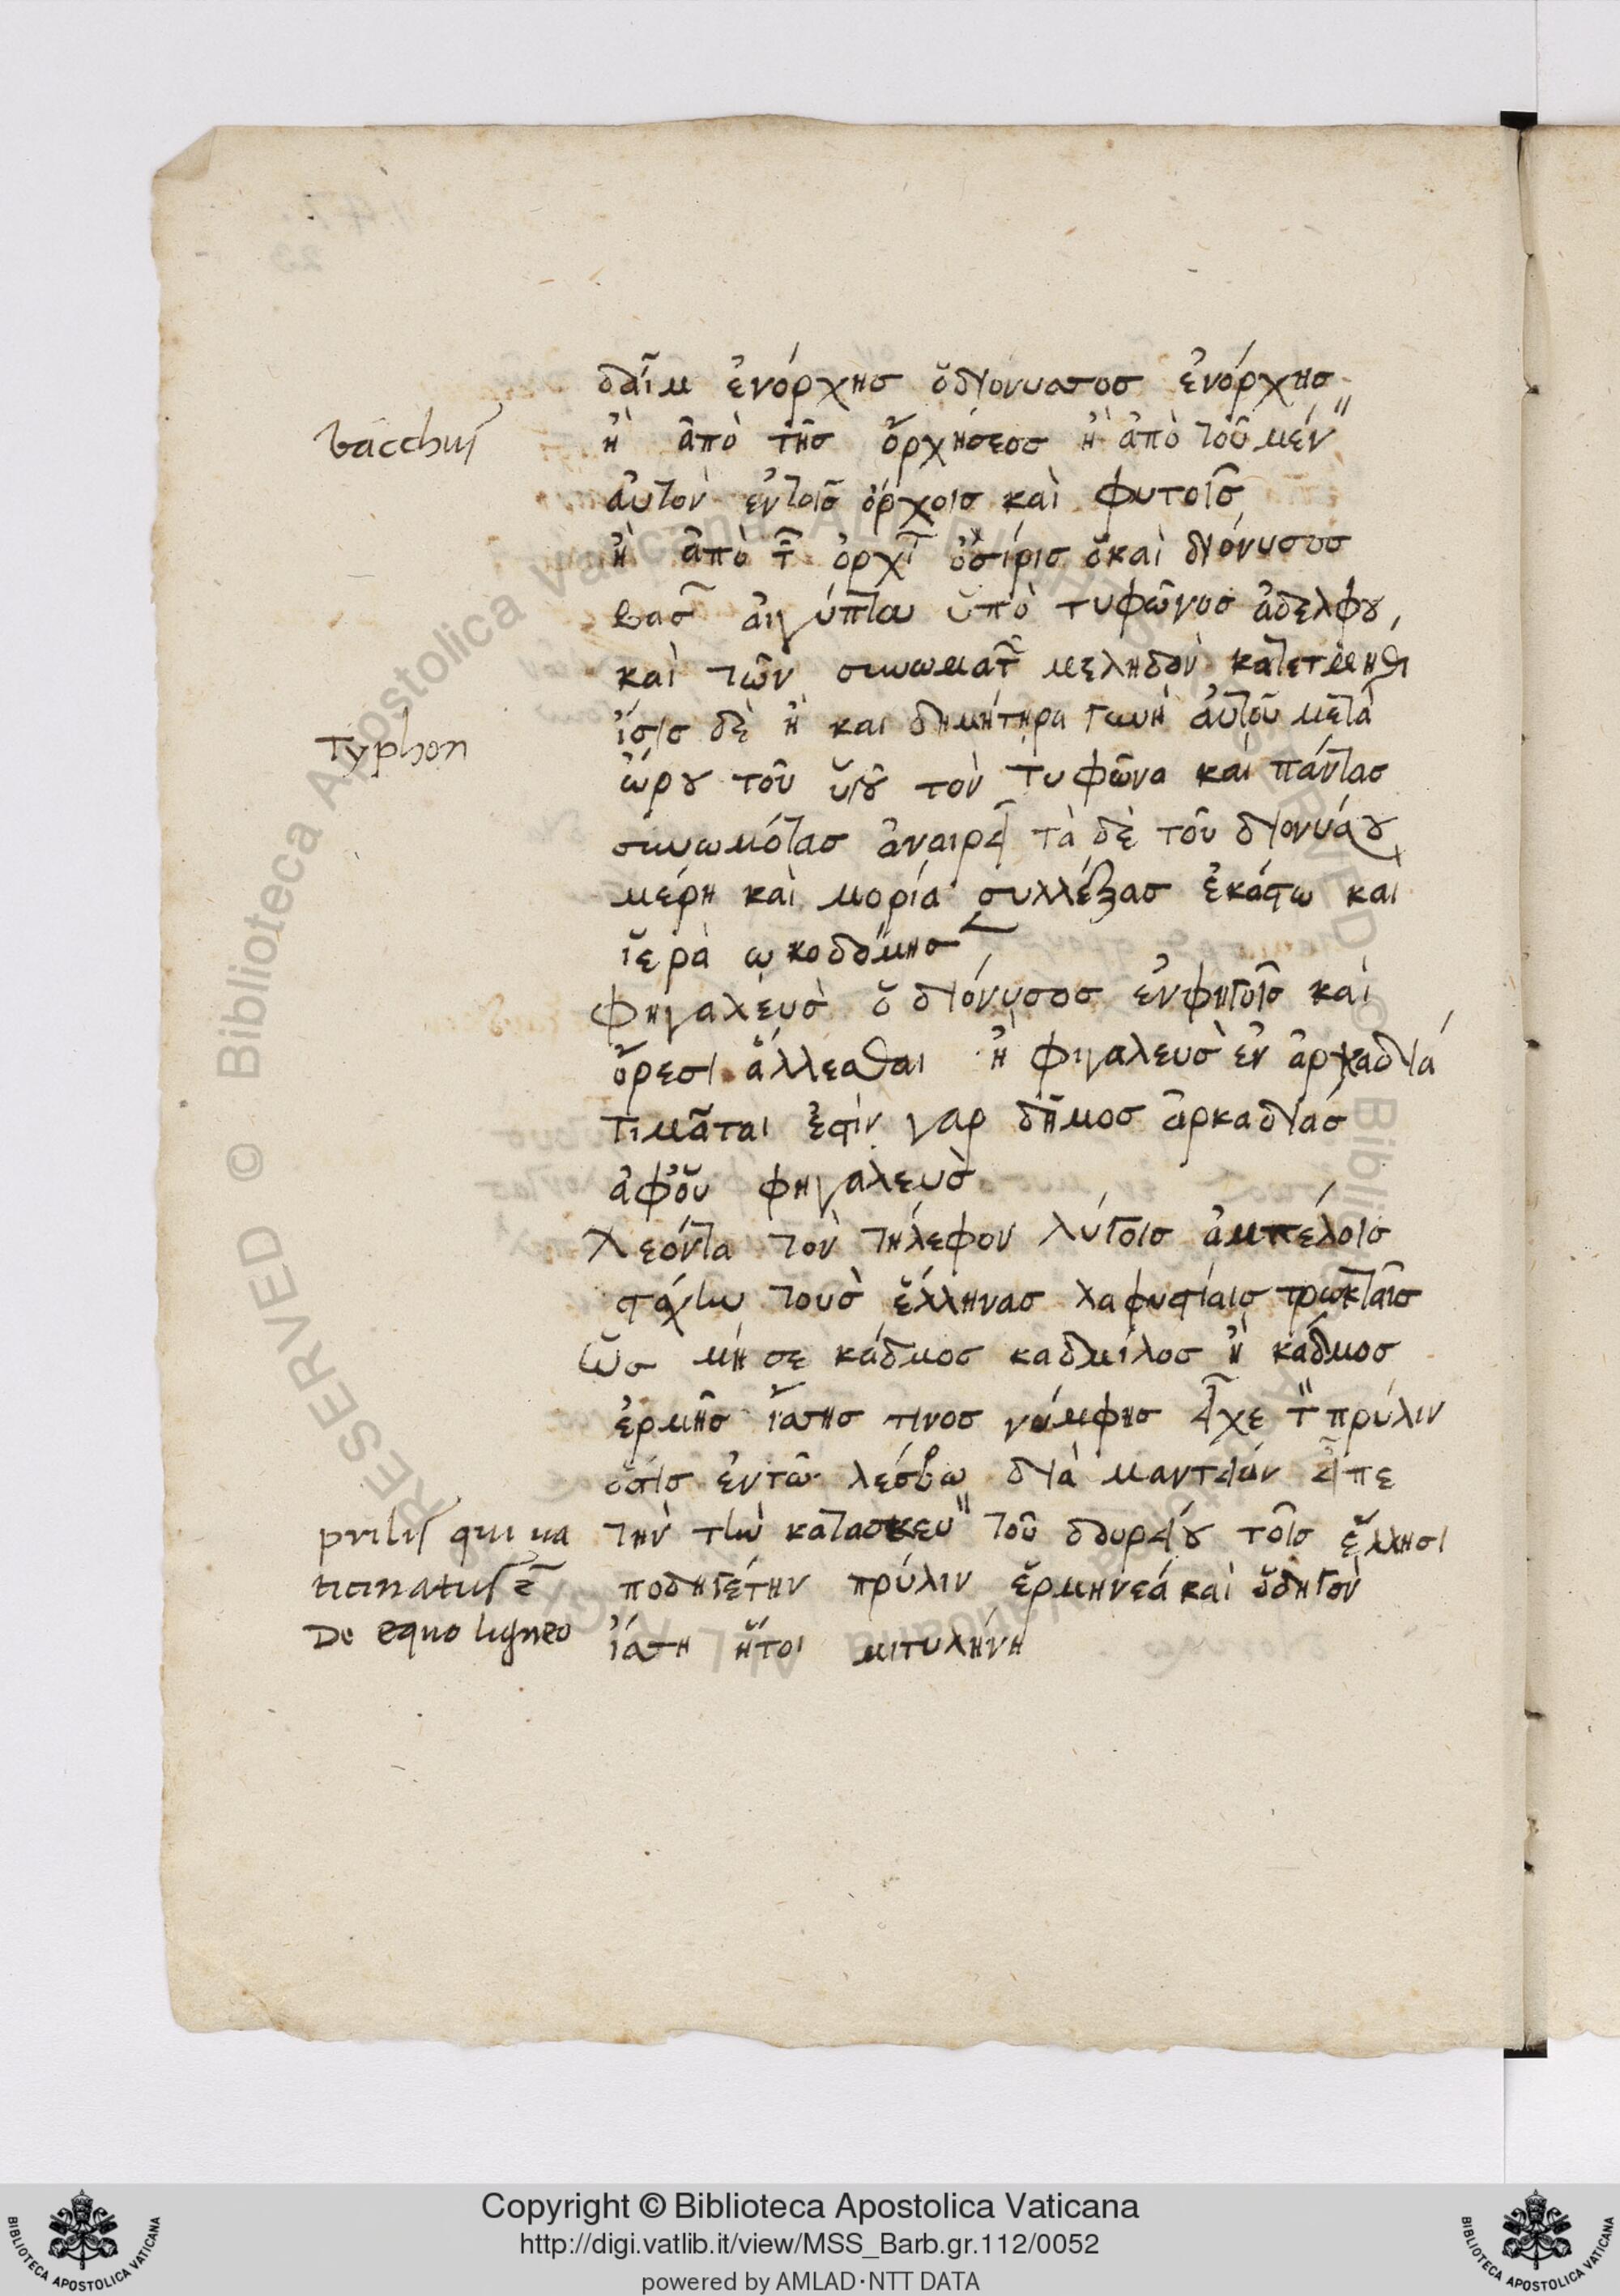 δαῖμ ἐνόρχησ ὁ διόνυσοσ ἐνόρχησ
bacchus
ἢ ἀπὸ τῆσ ὀρχήσεοσ ἢ ἀπὸ τοῦ μέν
αὐτὸν ἐν τοῖσ ὀρχοισ καὶ φυτοῖσ
ἢ ἀπὸ τ̑ ὀρχῑ ὀσίρισ ὁ καὶ διόνυσοσ
βασ αἰγύπτω ὑπὸ τυφῶνοσ ἀδελφου
καὶ τῶν συνωματ̑ μεληδὸν κατετμήθι
Typhon
ἴσισ δὲ ἢ και δημήτηρα γυνὴ αὐτοῦ μετὰ
ὤρου τοῦ ὑιοῦ τὸν τυφῶνα καὶ πάντασ
συνωμότασ ἀναιρεῖ τὰ δὲ τοῦ διονύσου
μέρη καὶ μορία συλλέξασ ἑκάστω και
ἱερὰ ωκοδόμησ
φηγαλὲυσ ὁ διόνυσοσ ἐν φητοῖσ καὶ
ὄρεσι ἄλλεσθαι ἢ φιγαλευσ ἐν ἀρκαδιά
τιμᾶται ἐστὶν γαρ δῆμοσ ἀρκαδιάσ
ἀφοῦ φηγαλευσ
λεόντα τὸν τήλεφον λύγοισ ἀμπέλοισ
στάχυν τουσ ἕλληνασ λαφυστίαισ τρωκταῖσ
ὡσ μή σε κάδμοσ καδμίλοσ ἢ κάδμοσ
ἑρμῆσ ἴσσησ τινοσ νύμφησ εἶχε τ̈ πρύλιν
ὅστισ ἐν τῶ λέσβω διὰ μαντειῶν εἶπε
prilis qui ua
τὴν τὴν κατασκεϋ τοῦ δουρείου τοῖσ ἕλλησι
ticinatus ē
ποδηγέτην πρύλιν ἑρμηνεά καὶ ὁδηγὸν
De equo ligneo
ἴσση ἤτοι μιτυλήνη
Copyright © Biblioteca Apostolica Vaticana
http://digi.vatlib.it/view/MSS_Barb.gr.112/0052
powered by AMLAD·NTT DATA